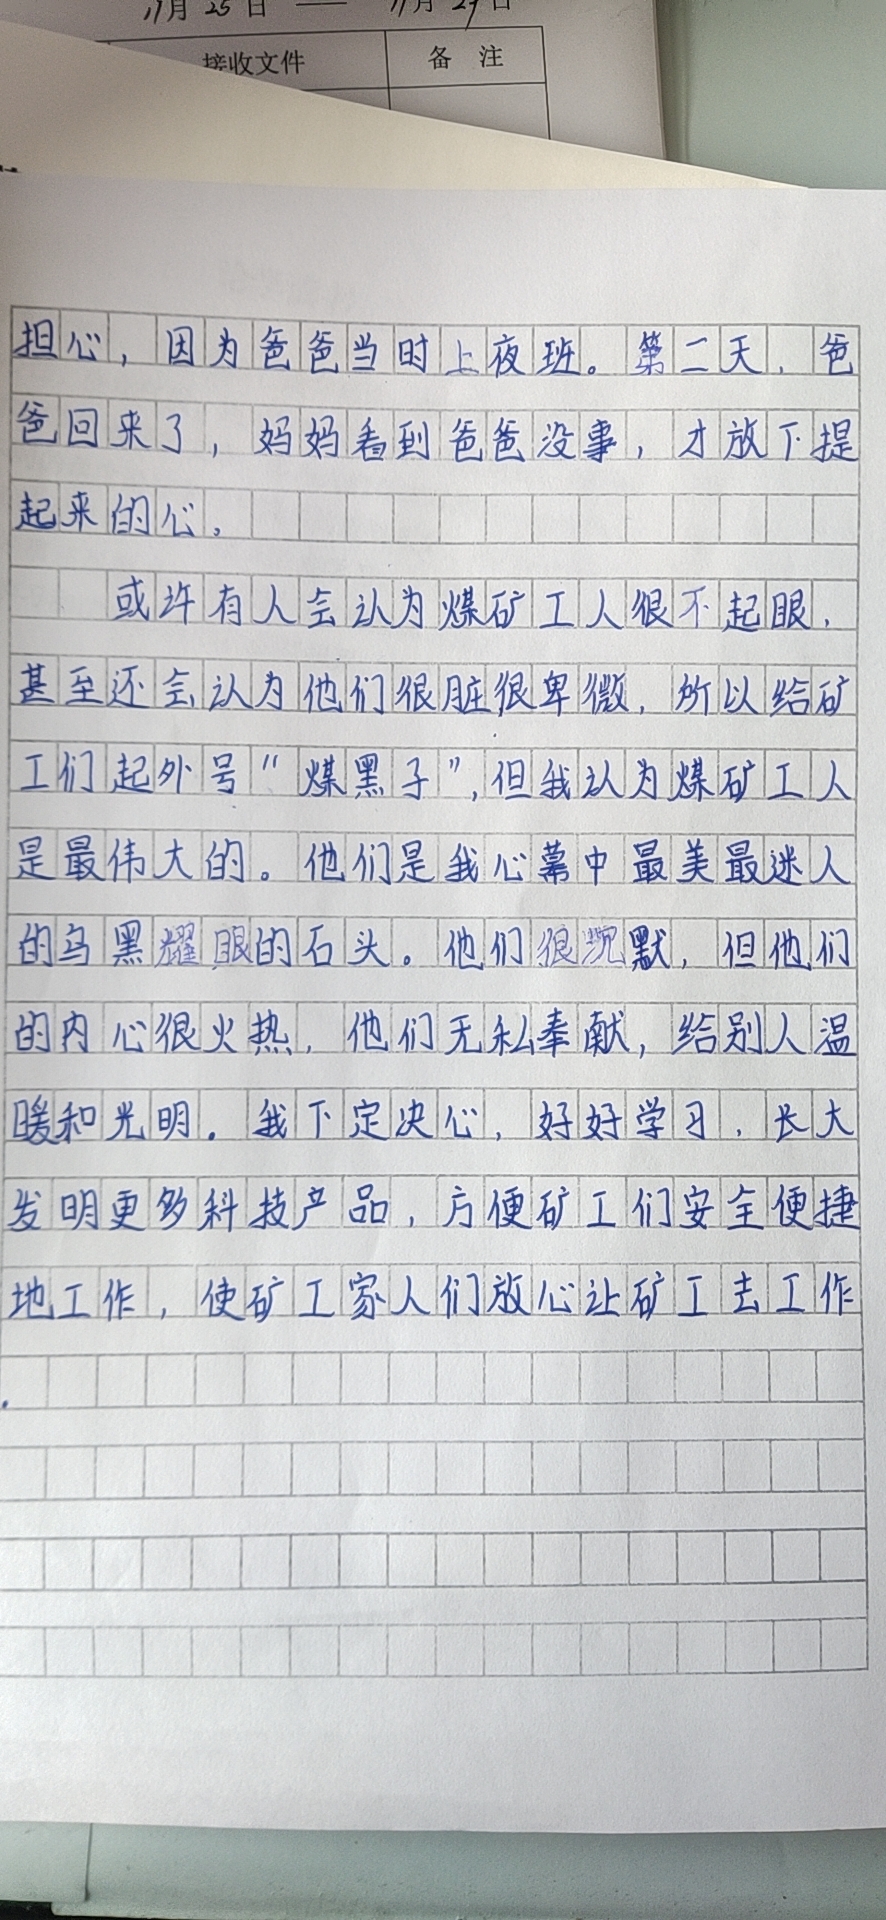 11月25日 — 11月29日
接收文件 备 注
担心，因为爸爸当时上夜班。第二天，爸
爸回来了，妈妈看到爸爸没事，才放下提
起来的心。
或许有人会认为煤矿工人很不起眼，
甚至还会认为他们很脏很卑微，所以给矿
工们起外号“煤黑子”，但我认为煤矿工人
是最伟大的。他们是我心幕中最美最迷人
的乌黑耀眼的石头。他们很沉默，但他们
的内心很火热，他们无私奉献，给别人温
暖和光明。我下定决心，好好学习，长大
发明更多科技产品，方便矿工们安全便捷
地工作，使矿工家人们放心让矿工去工作
.